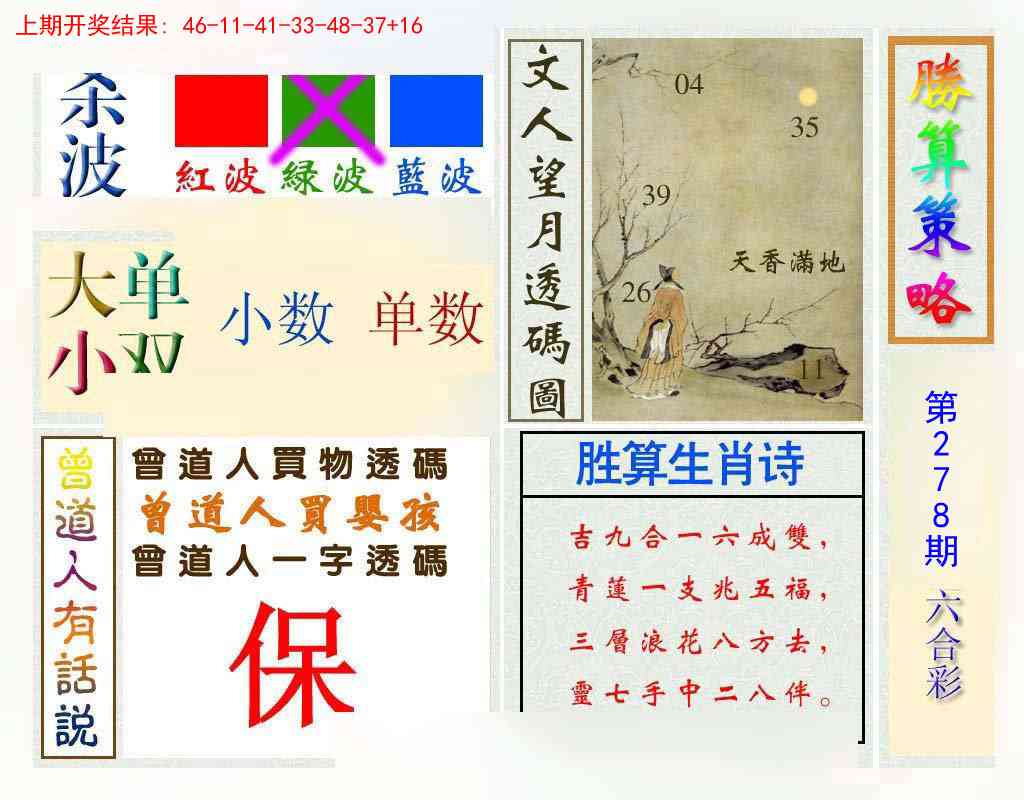 上期开奖结果: 46-11-41-33-48-37+16
杀波
紅波 緑波 藍波
大小
单双
小数 单数
曾道人有話説
曾道人買物透碼
曾道人買嬰孩
曾道人一字透碼
保
文人望月透碼圖
04
35
39
天香滿地
26
11
胜算生肖诗
吉九合一六成雙，
青蓮一支兆五福，
三層浪花八方去，
靈七手中二八伴。
勝算策略
第278期
六合彩